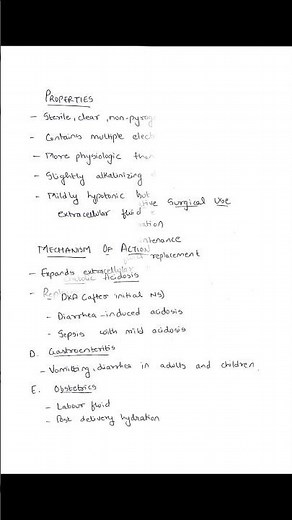 PROPERTIES
- Sterile, clear, non-pyrog
- Contains multiple elect
- More physiologic than
- Slightly alkalinizing
- Mildly hypotonic but
Surgical Use
extracellular fluid
MECHANISM OF ACTION
replacement
- Expands extracellular
Acidosis
- DKA (after initial NS)
- Diarrhea-induced acidosis
- Sepsis with mild acidosis
D. Gastroenteritis
- Vomiting, diarrhea in adults and children.
E. Obstetrics
- Labour fluid
- Post delivery hydration